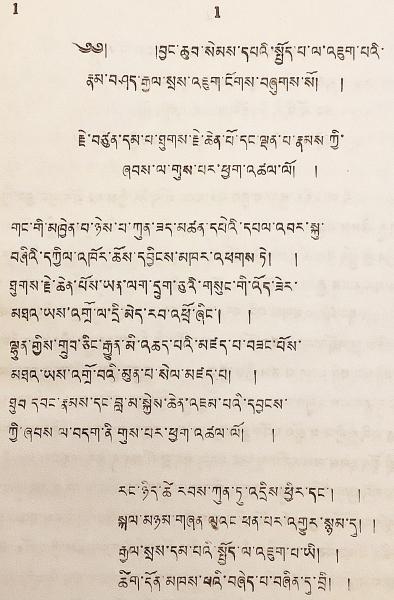 1 1
༄༅། །བྱང་ཆུབ་སེམས་དཔའི་སྤྱོད་པ་ལ་འཇུག་པའི་
རྣམ་བཤད་རྒྱལ་སྲས་འཇུག་ངོགས་བཞུགས་སོ། །
རྗེ་བཙུན་དམ་པ་ཐུགས་རྗེ་ཆེན་པོ་དང་ལྡན་པ་རྣམས་ཀྱི་
ཞབས་ལ་གུས་པར་ཕྱག་འཚལ་ལོ། །
གང་གི་མཁྱེན་བ་ཉེས་པ་ཀུན་ཟད་མཚན་དཔེའི་དཔལ་འབར་སྐུ་
བཞིའི་དཀྱིལ་འཁོར་ཆོས་དབྱིངས་མཁར་འཕགས་ཏེ། །
ཐུགས་རྗེ་ཆེན་པོས་ཡན་ལག་དྲུག་ཅུའི་གསུང་གི་འོད་ཟེར་
མཐའ་ཡས་འགྲོ་ལ་དྲི་མེད་རབ་འཕྲོ་ཞིང་། །
ལྷུན་གྱིས་གྲུབ་ཅིང་རྒྱུན་མི་འཆད་པའི་མཛད་པ་བཟང་པོས་
མཐའ་ཡས་འགྲོ་བའི་མུན་པ་སེལ་མཛད་པ། །
ཐུབ་དབང་རྣམས་དང་བླ་མ་སྐྱེས་ཆེན་འཇམ་པའི་དབྱངས་
ཀྱི་ཞབས་ལ་བདག་ནི་གུས་པར་ཕྱག་འཚལ་ལོ། །
རང་ཉིད་ཚེ་རབས་ཀུན་ཏུ་འདྲིས་ཕྱིར་དང་། །
སྐལ་མཉམ་གཞན་ལའང་ཕན་པར་འགྱུར་སྙམ་དུ། །
རྒྱལ་སྲས་དམ་པའི་སྤྱོད་ལ་འཇུག་པ་ཡི། །
ཚིག་དོན་མཁས་པའི་བཞེད་པ་བཞིན་དུ་བྲི། །